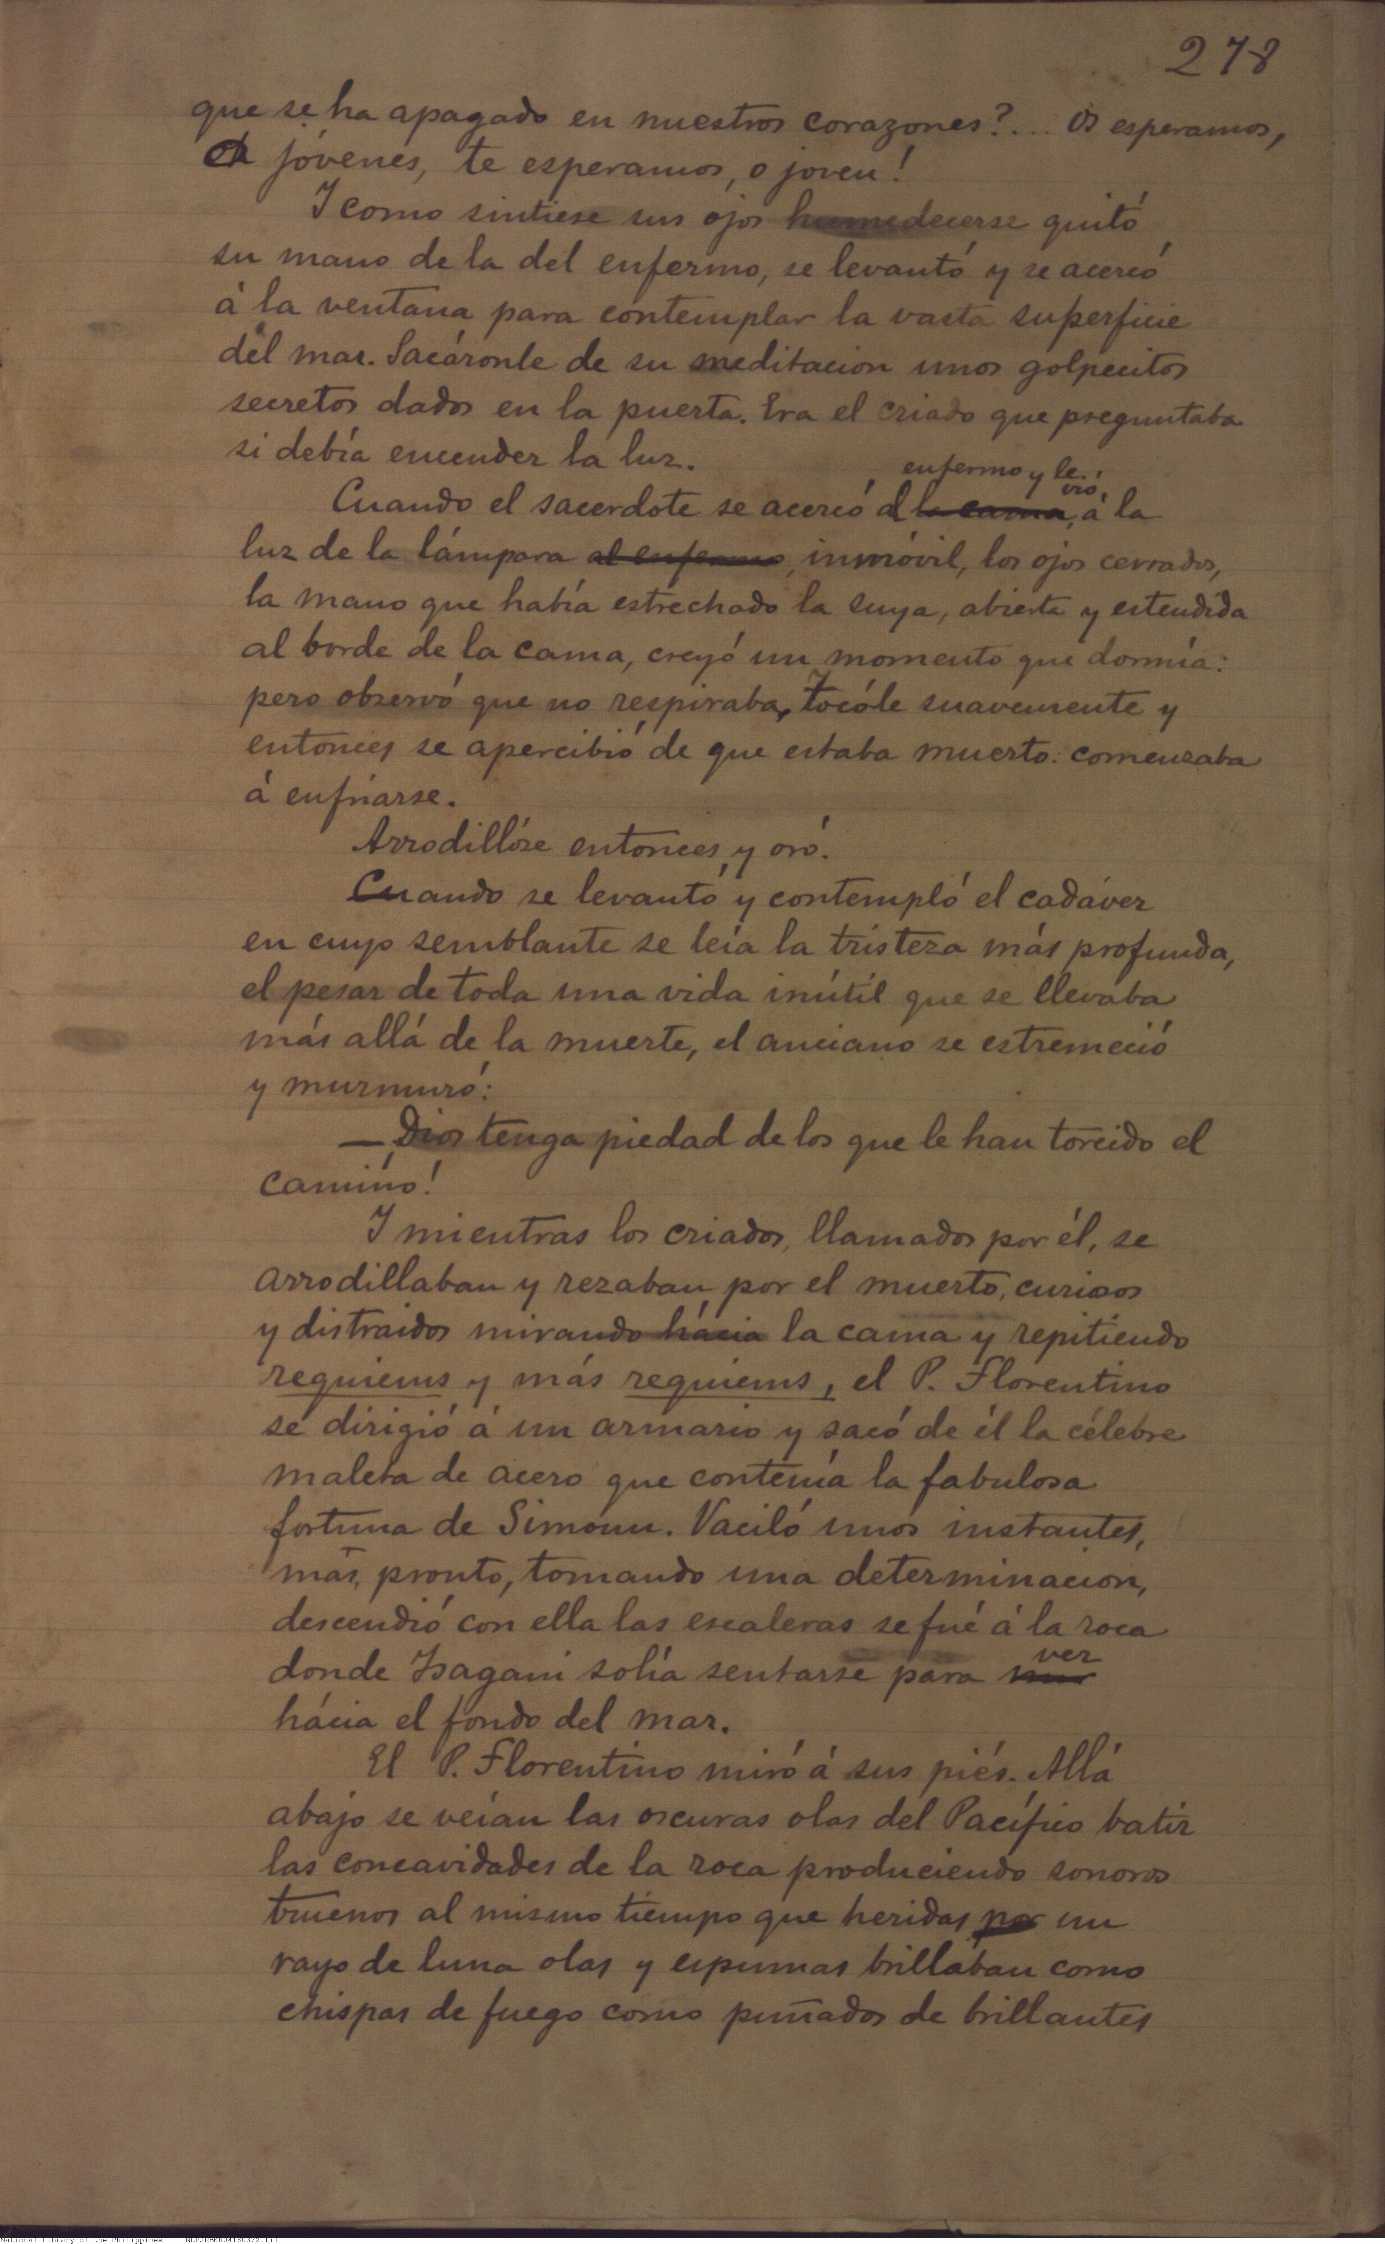 278
que se ha apagado en nuestros corazones?... Os esperamos,
oh jóvenes, te esperamos, o joven!
Y como sintiese sus ojos humedecerse quitó
su mano de la del enfermo, se levantó y se acercó
á la ventana para contemplar la vasta superficie
del mar. Sacáronle de su meditacion unos golpecitos
secretos dados en la puerta. Era el criado que preguntaba
si debía encender la luz.
enfermo y le vió,
Cuando el sacerdote se acercó al la cama, á la
luz de la lámpara al enfermo, inmóvil, los ojos cerrados,
la mano que había estrechado la suya, abierta y estendida
al borde de la cama, creyó un momento que dormía:
pero observó que no respiraba, tocóle suavemente y
entonces se apercibió de que estaba muerto: comenzaba
á enfriarse.
Arrodillóse entonces y oró.
Cuando se levantó y contempló el cadáver
en cuyo semblante se leía la tristeza más profunda,
el pesar de toda una vida inútil que se llevaba
más allá de la muerte, el anciano se estremeció
y murmuró:
—Dios tenga piedad de los que le han torcido el
camino!
Y mientras los criados, llamados por él, se
arrodillaban y rezaban por el muerto, curiosos
y distraidos mirando hácia la cama y repitiendo
requiems y más requiems, el P. Florentino
se dirigió á un armario y sacó de él la célebre
maleta de acero que contenía la fabulosa
fortuna de Simoun. Vaciló unos instantes,
mas, pronto, tomando una determinacion,
descendió con ella las escaleras se fué á la roca
ver
donde Isagani solía sentarse para
hácia el fondo del mar.
El P. Florentino miró á sus piés. Allá
abajo se veían las oscuras olas del Pacífico batir
las concavidades de la roca produciendo sonoros
truenos al mismo tiempo que heridas por un
rayo de luna olas y espumas brillaban como
chispas de fuego como puñados de brillantes